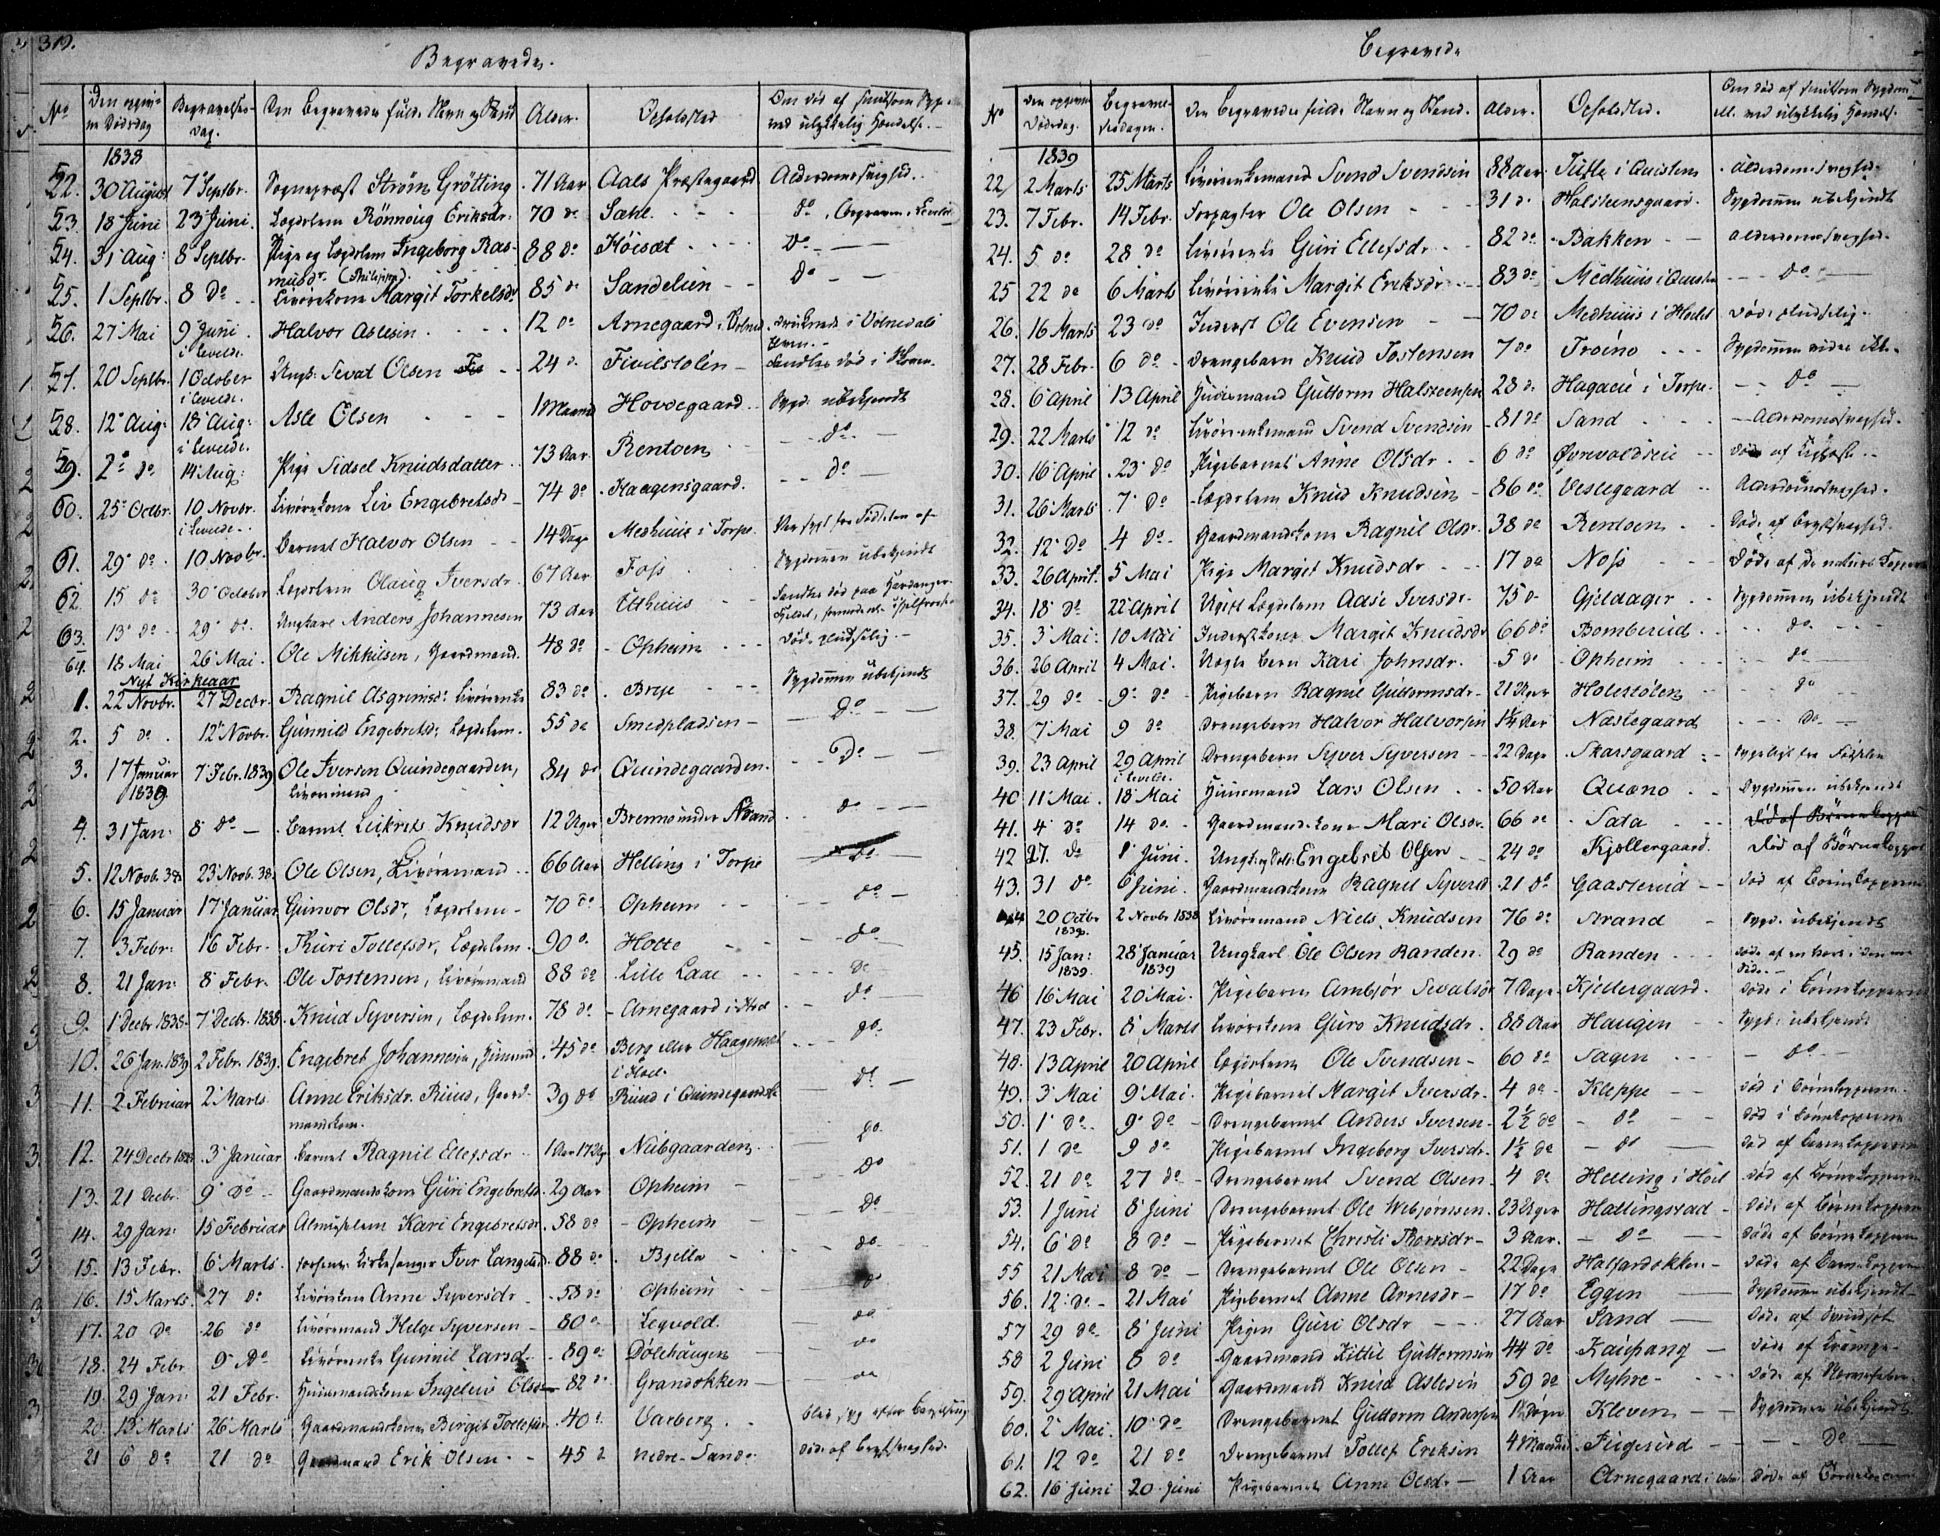 319.
Begravede.
No | Den opgivne Dødsdag | Begravelses-Dag. | Den Begravedes fulde Navn og Stand | Alder. | Opholdsted | Om død af smitsom Sygdom eller ved ulykkelig Hændelse.
1838
52. 30 August 7 Septbr. Sognepræst Strøm Grøtting 71 Aar Aals Præstegaard Alderdomssvaghed.
53. 18 Juni 23 Juni. Lægdslem Rönnoug Eriksdr. 70 do Sahl. do
54. 31 Aug: 8 Septbr. Pige og Lægdslem Ingeborg Rasmusdr. 88 do Höisæt Do
55. 1 Septbr. 8 Do Livörekone Margit Torkelsdr. 85 do Sandelien Do
56. 27 Mai 9 Juni Halvor Aslesen 12 do Arnegaard
57. 20 Septbr. 1 October Ungk: Sevat Olsen 24 do Fivilstolen
58. 12 Aug: 18 Aug: Asle Olsen 1 Maaned Hovdegaard Sygd: ubekjendt
59. 2 do 14 Aug: Pige Sidsel Knudsdatter 73 Aar Rentoen do
60. 25 Octbr. 10 Novbr. Livörekone Liv Engebretsdr 74 do Haagensgaard. do
61. 29 do 10 Novbr. Barnet Halvor Olsen 14 Dage Medhuus i Torpe
62. 15 do 30 October Lægdslem Olaug Iversdr. 67 Aar Foss Sygdommen ubekjendt
63. 13 do 29 do. Ungkarl Anders Johannesen 73 Aar Uthuus
64. 18 Mai 26 Mai. Ole Mikkelsen, Gaardmand. 48 do Opheim Döde pludselig
Nyt Kirkeaar
1. 22 Novbr. 27 Decbr. Ragnil Asgrimsdr. Livörenke 83 do Breie Sygdommen ubekjendt
2. 5 do. 12 Novbr. Gunnild Engebretsdr. Lægdslem. 55 do Smedpladsen Do
3. 17 Januar 1839 7 Febr. 1839 Ole Iversen Quindegaarden, Livöremand 84 do Quindegaarden. do
4. 31 Jan: 8 do Barnet Leikret Knudsdr 12 Uger Brenno under Nöand do
5. 12 Novb. 38 23 Novb. 38. Ole Olsen, Livöremand 66 Aar Helling i Torpe do
6. 15 Januar 17 Januar Gunvor Olsdr, Lægdslem 70 do Opheim do
7. 3 Febr: 16 Febr. Thuri Tollefsdr, Lægdslem. 90 do. Holte do
8. 21 Jan: 8 Febr. Ole Tostensen, Livöremand 88 do Lille Laae do
9. 1 Decbr 1838. 7 Decbr. 1838. Knud Syversen, Lægdslem. 78 do Arnegaard i Hol do
10. 26 Jan. 1839 2 Febr. 1839. Engebret Johannesen, Huusmand 45 do Berg eller Haagensæt i Hol. do
11. 2 Februar 2 Marts Anne Eriksdr. Ruud, Gaardmandskone. 39 do Ruud i Quindegaards do
12. 24 Decbr 1838 3 Januar Barnet Ragnil Ellefsdr 1 Aar 17 Ug Nubgaarden do
13. 21 Decbr. 9 do Gaardmandskone Guri Engebretsdr. 29 Aar Opheim do
14. 29 Jan: 15 Februar Almisselem Kari Engebretsdr 58 do Opheim do
15. 13 Febr. 6 Marts. forhenv. Kirkesanger Iver Langeland 88 do. Bjella do
16. 15 Marts. 27 do Livörekone Anne Syversdr 58 do Opheim do
17. 20 do 26 do Livöremand Helge Syversen 80 do Legvold. do
18. 24 Febr 9 do Livörenke Gunnil Larsd. 89 do Dölehaugen do
19. 29 Jan: 21 Febr. Huusmandskone Ingeleiv Olsdr 82 do Grandokken do
20. 13 Marts 26 Marts Gaardmandskone Birgit Tollefsdr 40 do. Varberg blev syg efter Barselseng
21 6 do 21 do Gaardmand Erik Olsen 45 do nedre Sando Död af Brystsvaghed.
Begravede
No | Den opgivne Dødsdag. | Begravelsesdagen. | Den Begravedes fulde Navn og Stand. | Alder. | Opholdsted. | Om død af smitsom Sygdom ell. ved ulykkelig Hændels.
1839
22 2 Marts 25 Marts Livörenkemand Svend Svendsen 88 Aar Tufte i Auisten Alderdomssvaghed.
23. 7 Febr. 14 Febr. Forpagter Ole Olsen 31 do Halsteensgaard. Sygdommen ubekjendt
24. 5 do 28 do Livörenke Guri Ellefsdr 82 do Bakken Alderdomssvaghed.
25 22 do 6 Marts Livörenke Margit Eriksdr 83 do Medhuus i Auisten do
26. 16 Marts 23 do Inderst Ole Evensen 70 do Medhuus i Hoel Död pludselig.
27. 28 Febr. 6 do Drengebarn Knud Tostensen 7 do Troino
28. 6 April 13 April Huusmand Guttorm Halsteensen 28 do Hagacie i Torpe. do
29. 22 Marts 12 do Livörenkemand Svend Svendsen 81 do Sand Alderdomssvaghed.
30. 16 April 23 do Pigebarnet Anne Olsdr 6 do Övrevoldseie
31. 26 Marts 7 do Lægdslem Knud Knudsen 86 do Vestegaard Alderdomssvaghed.
32. 12 do 4 do Gaardmandskone Ragnil Olsdr. 38 do Rentoen Döde af Brystsvaghed.
33. 26 April. 5 Mai Pige Margit Knudsdr 17 do Noss Döde af de naturl. Kopper
34. 18 do 22 April Ugift Lægdslem Aase Iversdr 75 do Gjeldager Sygdommen ubekjendt
35. 3 Mai. 10 Mai Inderstkone Margit Knudsdr 66 do Bomberud do
36. 26 April 4 Mai. Uægte Barn Kari Johnsdr. 5 do Opheim do
37. 29 do 9 do Pigebarn Ragnil Guttormsdr 21 Uger Holestölen do
38. 7 Mai 9 do Drengebarn Halvor Halvorsen 1½ Aar Næstegaard do
39. 23 April 29 April Drengebarn Syver Syversen 22 Dage Skarsgaard Sygeligt fra Födslen
40 11 Mai. 18 Mai Huusmand Lars Olsen 50 Aar Quæno Sygdommen ubekjendt
41. 4 do 14 do Gaardmandskone Mari Olsdr. 66 do Sata
42 27. do 1 Juni. Ungk. Engebret Olsen 24 do Kjollergaard. Död af Börnekopper
43. 31 do 6 Juni. Gaardmandskone Ragnil Syversd 21 do Gaasterud Död af Börnekopperne
44 20 Octbr 1838. 2 Novbr 1838 Livöremand Niels Knudsen 76 do Strand Sygd: ubekjendt
45. 15 Jan: 1839. 28 Januar 1839 Ungkarl Ole Olsen Randen 29 do Randen
46 16 Mai 20 Mai. Pigebarn Ambjör Sevatsdr 7 Dage Kjellergaard. Döde i Börnekopperne
47. 23 Febr. 8 Marts Livörekone Guro Knudsdr. 88 Aar Haugen Sygd. ubekjendt
48. 13 April 20 April Lægdslem Ole Svendsen 60 do Sagen do
49. 3 Mai 9 Mai. Pigebarnet Margit Iversdr. 4 do Kleppe Död i Börnekopperne.
50. 1 do. 9 do Drengebarnet Anders Iversen 2½ do do Död i Börnekopperne
51. 1 do 9 do Pigebarnet Ingeborg Iversdr. 1½ do do Död af Börnekopperne
52. 21 do 27 do Drengebarnet Svend Olsen 4 do Helling i Hoel Död af Börnekopperne
53. 1 Juni 8 Juni Drengebarnet Ole Webjörnsen. 23 Uger Hallingsrad Döde af Börnekopperne
54. 6 do 8 do Pigebarnet Christi Thorsdr 3 Aar. do Döde af Börnekopperne
55 21 Mai 8 do Drengebarnet Ole Olsen 22 Dage Halfardokken Döde af Börnekopperne
56. 12 do 21 Mai Pigebarnet Anne Arnesdr 17 do Eggen Sygdommen ubekjendt
57 29 do 8 Juni Pigen Guri Olsdr 27 Aar Sand
58 2 Juni 8 do Gaardmand Kittil Guttormsen 44 do Kaushang Döde af Krampe
59. 29 April 21 Mai Gaardmand Knud Aslesen 59 do Myhre Döde af Nervefeber
60. 2 Mai. 10 do Drengebarnet Guttorm Andersen Kleven Sygdommen ubekjendt
61. 12 do 21 do Drengebarnet Tollef Eriksen 4 Maaned Fingerud do
62. 16 Juni 20 Juni Pigebarnet Anne Olsdr 1 Aar Arnegaard Döde af Börnekopperne